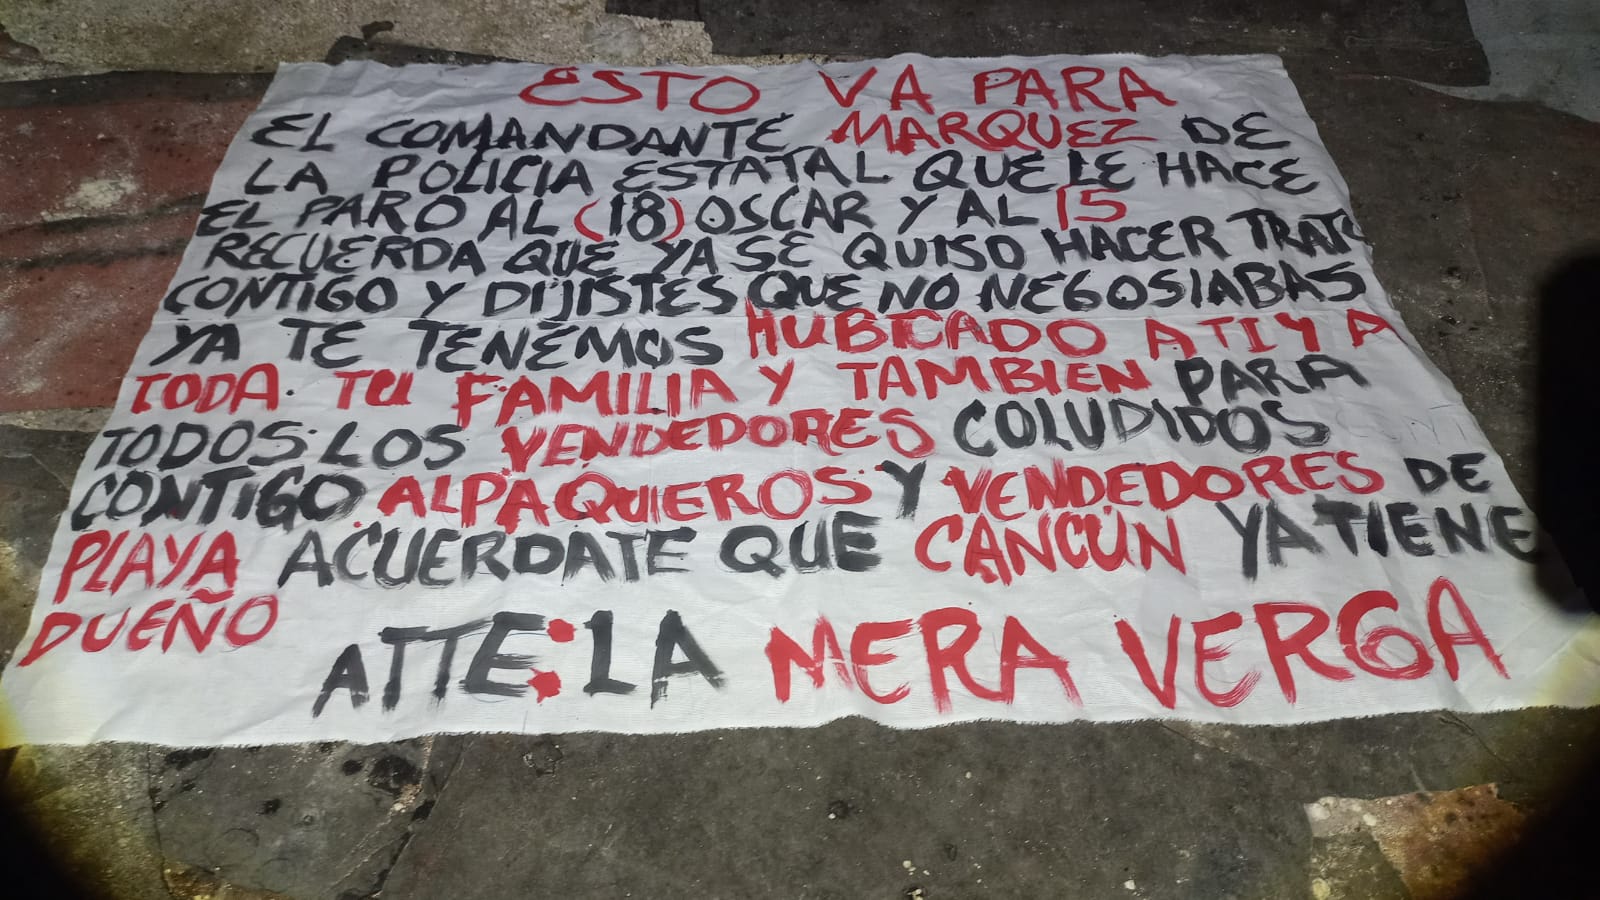 ESTO VA PARA
EL COMANDANTE MARQUEZ DE
LA POLICIA ESTATAL QUE LE HACE
EL PARO AL (18) OSCAR Y AL 15
RECUERDA QUE YA SE QUISO HACER TRATO
CONTIGO Y DIJISTES QUE NO NEGOSIABAS
YA TE TENEMOS HUBICADO A TI Y A
TODA TU FAMILIA Y TAMBIEN PARA
TODOS LOS VENDEDORES COLUDIDOS
CONTIGO ALPAQUIEROS Y VENDEDORES DE
PLAYA ACUERDATE QUE CANCÚN YA TIENE
DUEÑO
ATTE: LA MERA VERGA